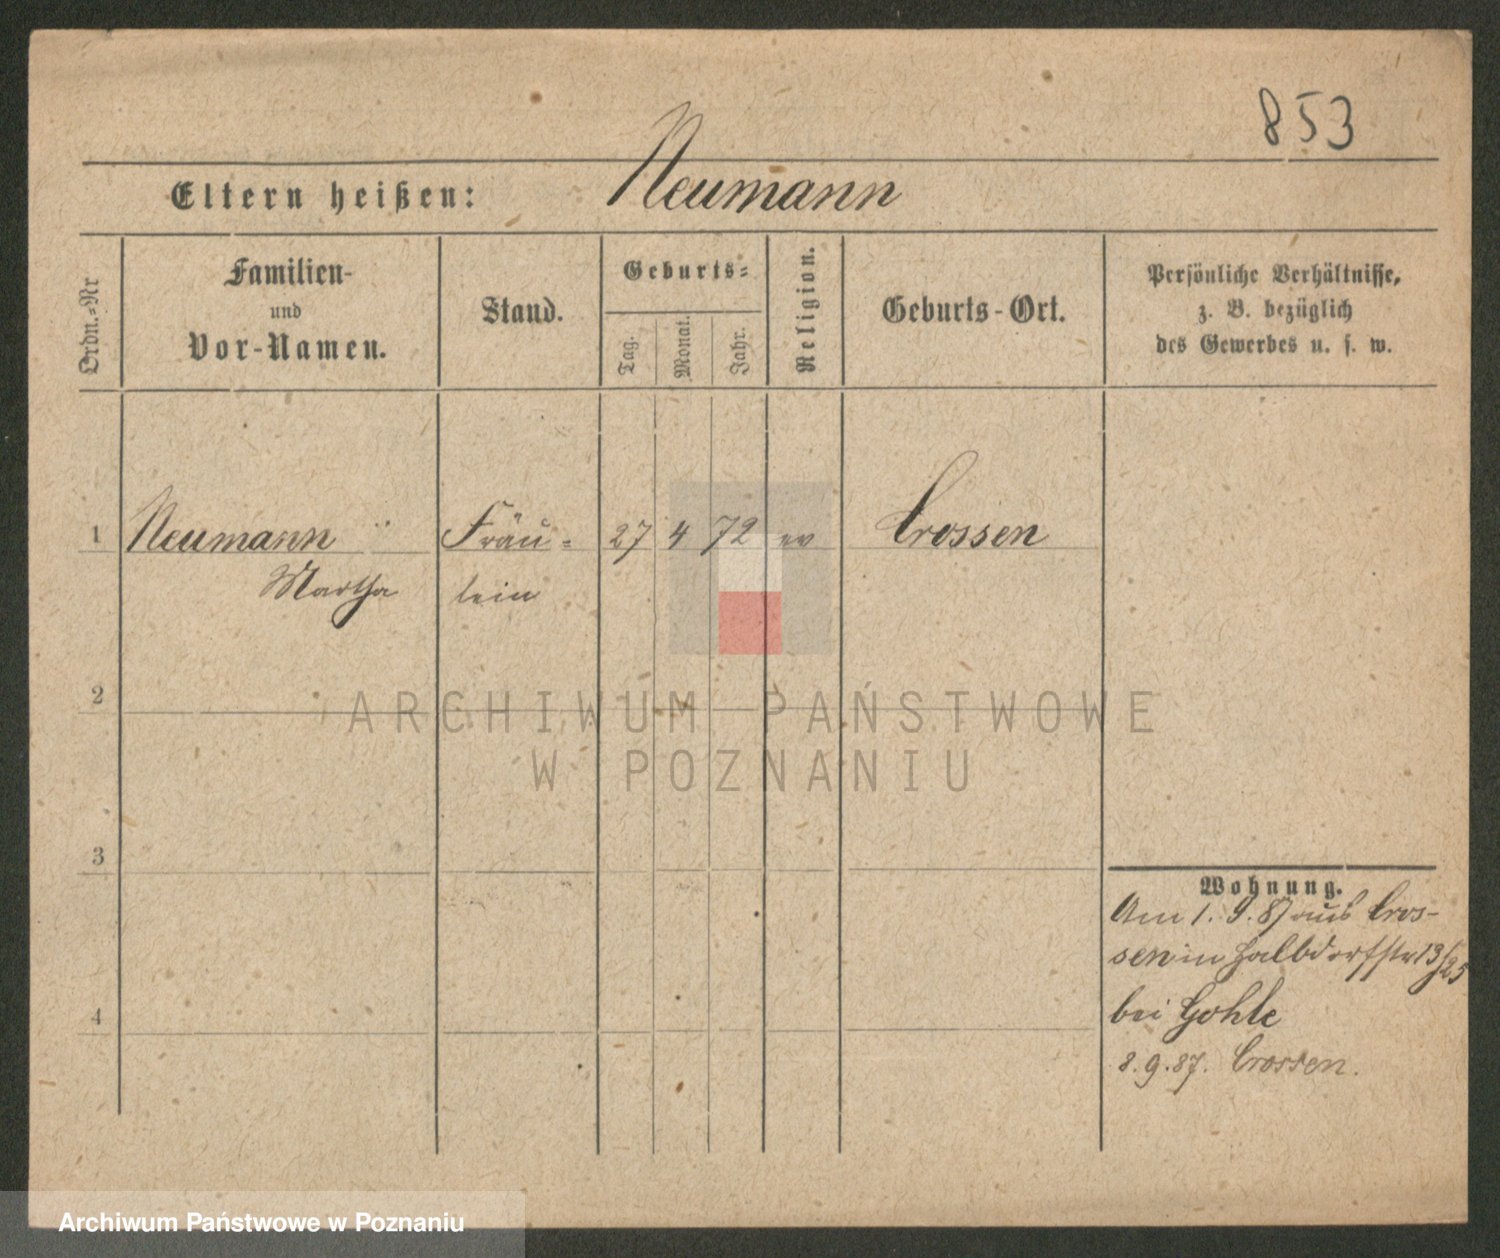 853
Eltern heißen: Neumann
Ordn.-Nr
Familien-
und
Vor-Namen.
Stand.
Geburts-
Tag.
Monat.
Jahr.
Religion.
Geburts-Ort.
Persönliche Verhältnisse,
z. B. bezüglich
des Gewerbes u. s. w.
1 Neumann Fräu- 27 4 72 ev Crossen
Martha lein
2
3
4
Wohnung.
Am 1. 9. 87 aus Cros-
sen in Halbdorfstr 13/25
bei Gohle
8.9.87. Crossen.
ARCHIWUM PAŃSTWOWE
W POZNANIU
Archiwum Państwowe w Poznaniu